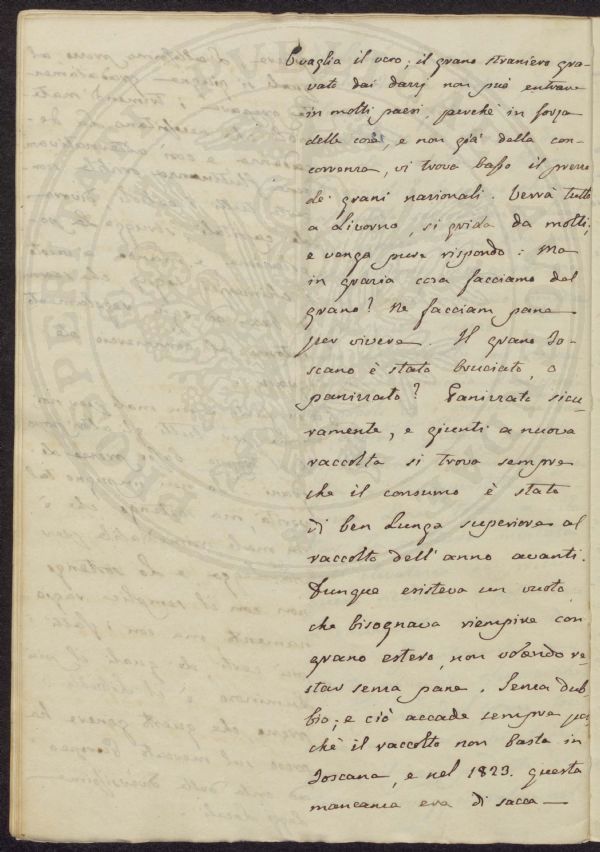 E vaglia il vero; il grano straniero gra-
vato dai dazj non può entrare
in molti paesi, perchè in forza
delle cose, e non già della con-
correnza, vi trova basso il prezzo
de' grani nazionali. Verrà tutto
a Livorno, si grida da molti,
e venga pure rispondo: Ma
in grazia cosa facciamo del
grano? Ne facciam pane
per vivere. Il grano To-
scano è stato bruciato, o
panizzato? Panizzato sicu-
ramente, e giunti a nuova
raccolta si trova sempre
che il consumo è stato
di ben lunga superiore al
raccolto dell'anno avanti.
Dunque esisteva un vuoto
che bisognava riempire con
grano estero, non volendo re-
star senza pane. Senza dub-
bio; e ciò accade sempre poi
chè il raccolto non basta in
Toscana, e nel 1823. questa
mancanza era di sacca —